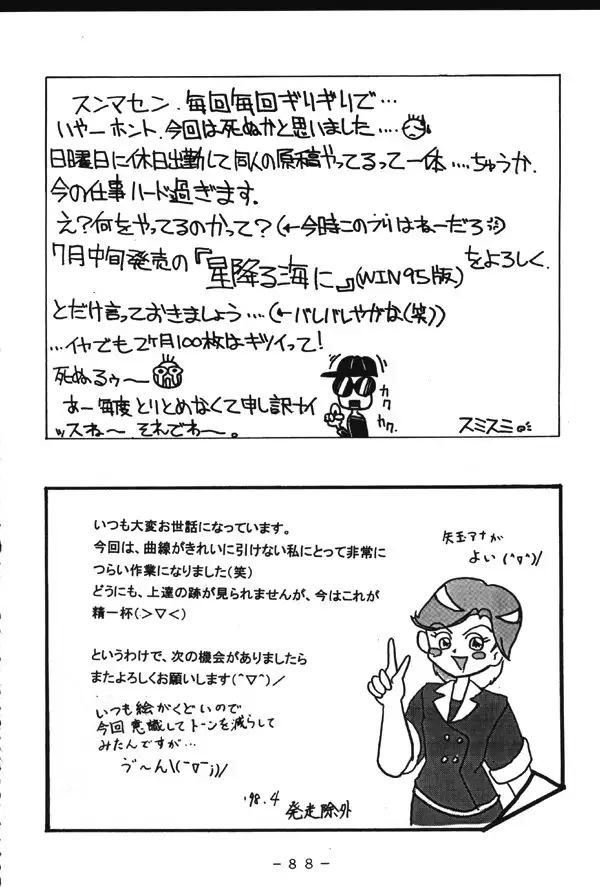 スンマセン.毎回毎回ギリギリで…
いやーホント.今回は死ぬかと思いました‥‥
日曜日に休日出勤して同人の原稿やってるって一体‥‥ちゅうか.
今の仕事ハード過ぎます。
え?何をやってるのかって?(←今時このフリはねーだろ)
7月中旬発売の『星降る海に』(WIN95版)をよろしく.
とだけ言っておきましょう‥‥(←バレバレやがな(笑))
…イヤでも2ヶ月100枚はキツイって!
死ぬるぅ〜
あー毎度とりとめなくて申し訳ナイ
ッスね〜 それでわ〜。
カクカク.
スミスミ
いつも大変お世話になっています。
今回は、曲線がきれいに引けない私にとって非常に
つらい作業になりました(笑)
どうにも、上達の跡が見られませんが、今はこれが
精一杯(>▽<)
というわけで、次の機会がありましたら
またよろしくお願いします(^▽^)/
いつも絵がくどいので
今回意識してトーンを減らして
みたんですが…
ゔ〜ん\(ー▽ー;)/
'98.4
発走除外
矢玉アナが
よい(^▽^)/
-88-